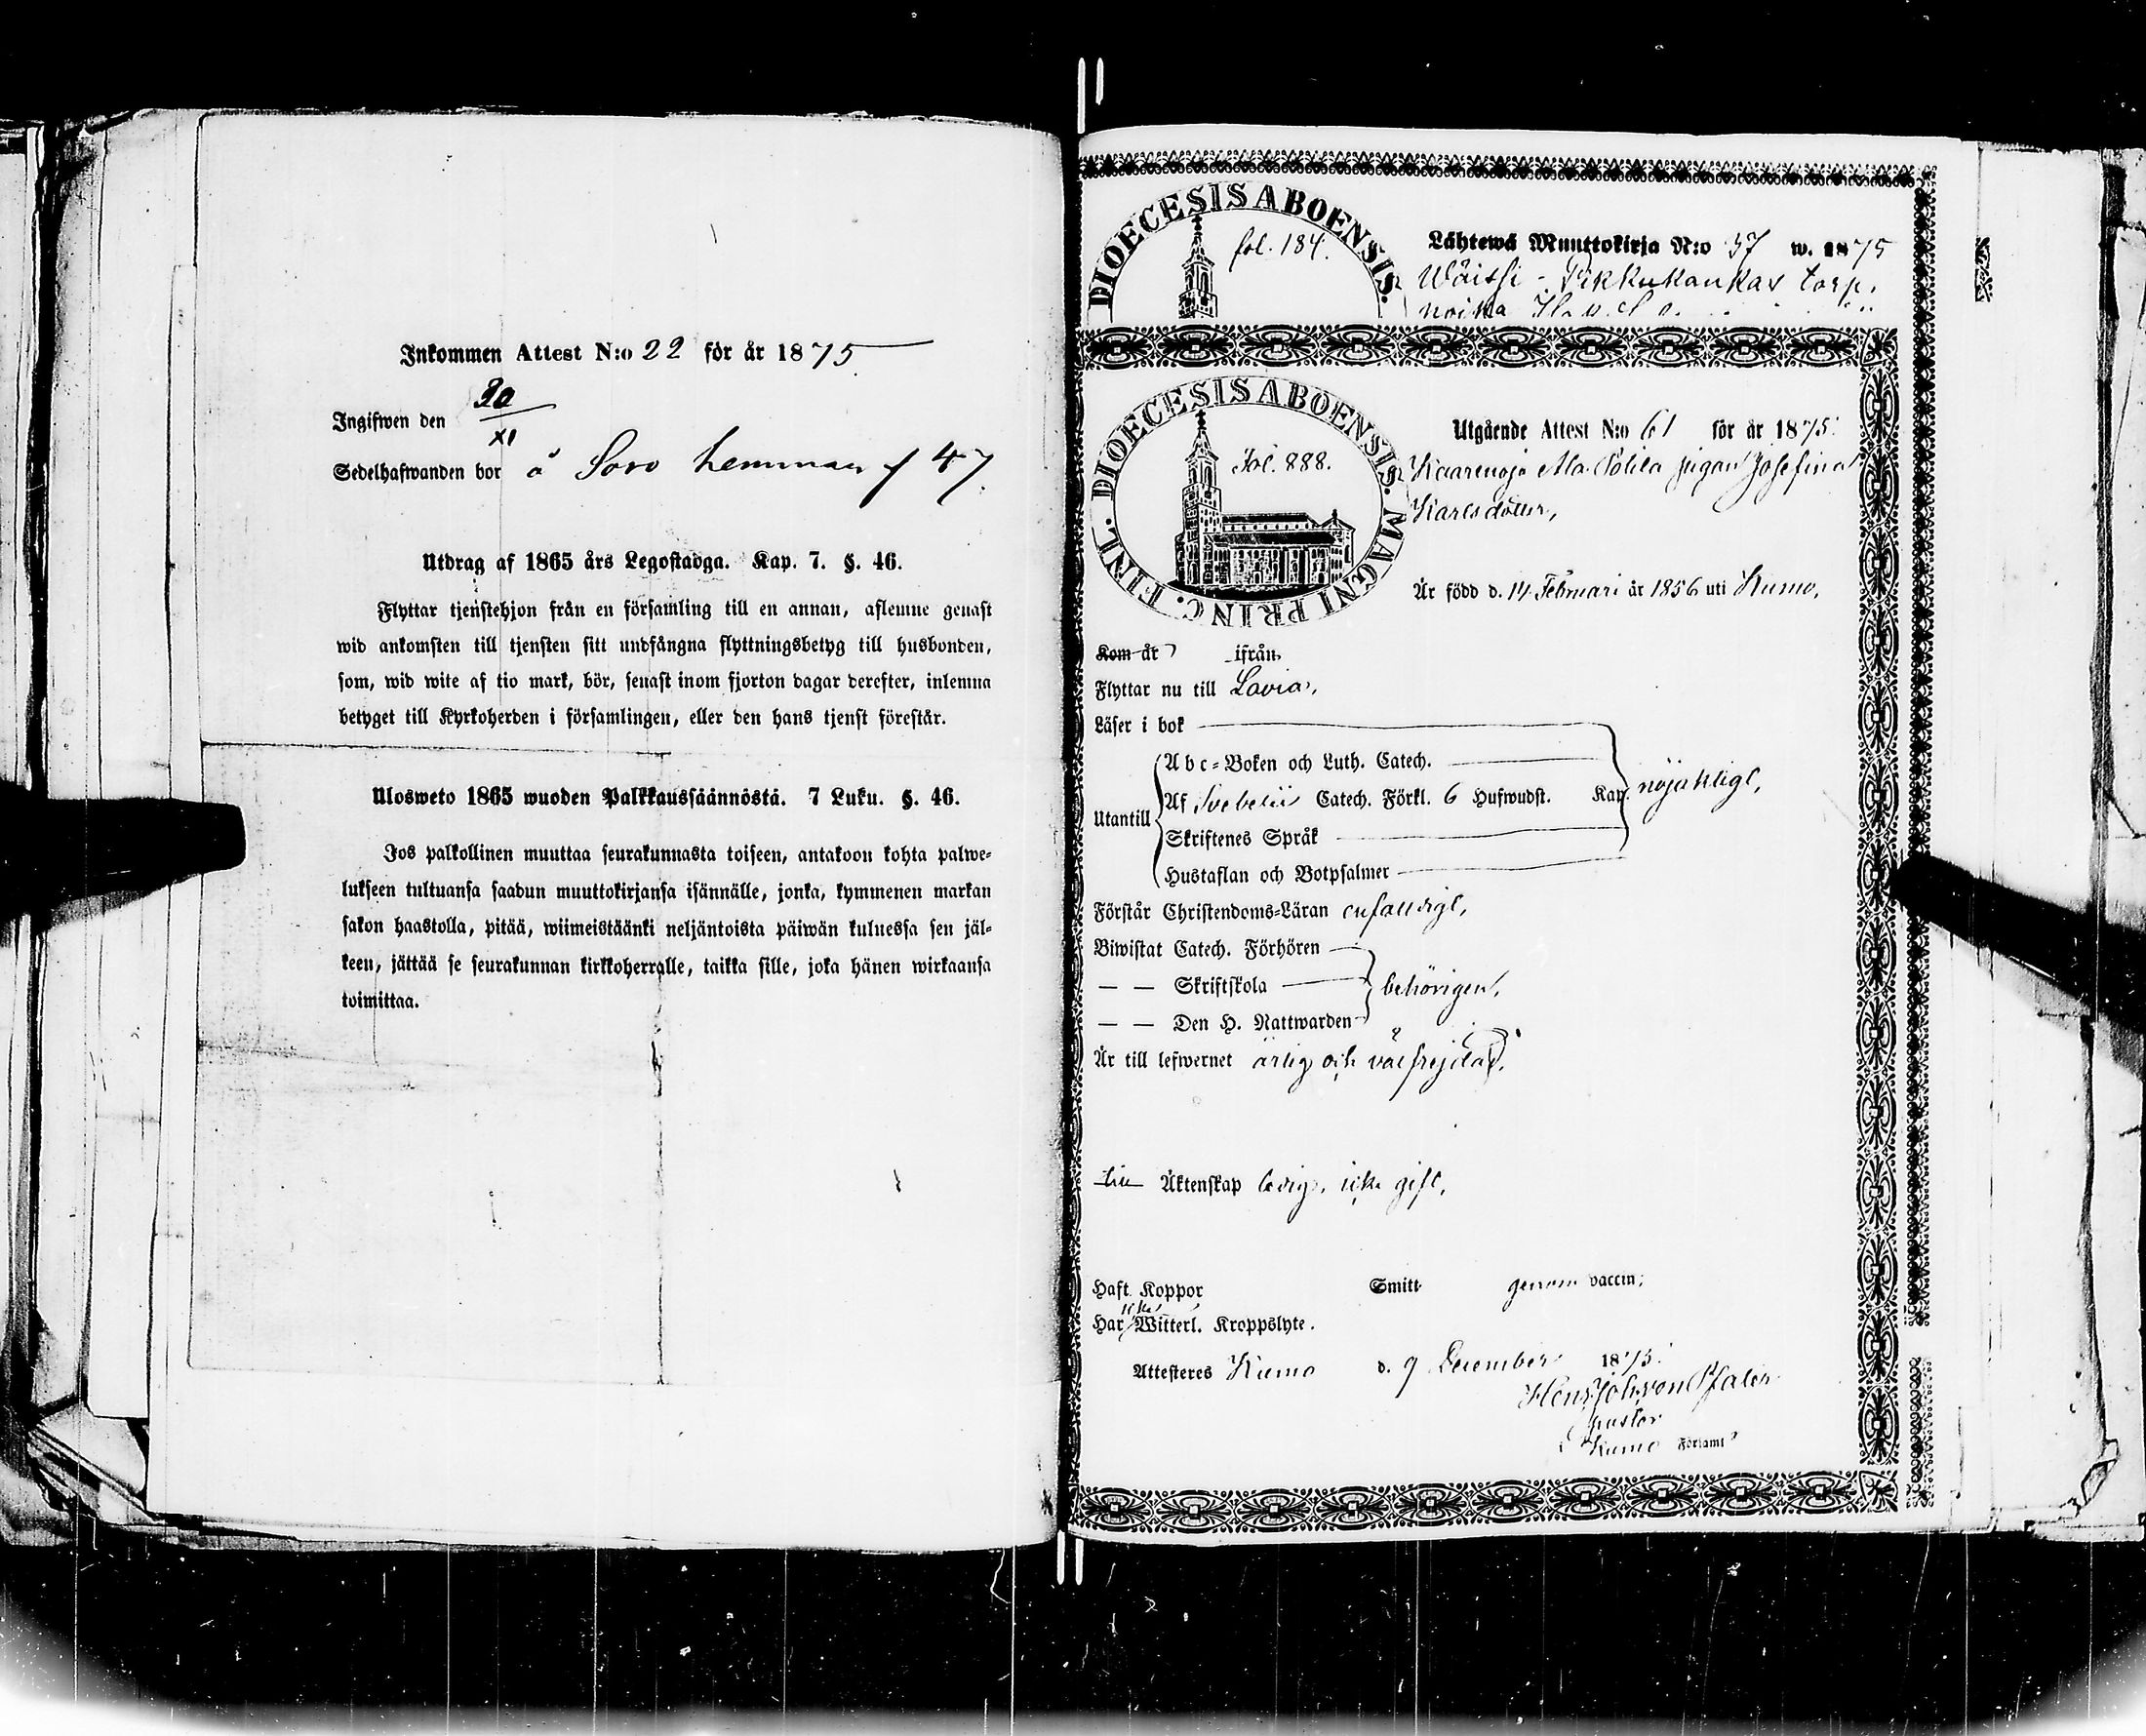 Inkommen Attest N:o 22 för år 1875.
Ingifwen den 20/XI
Sedelhafwanden bor å Sovo hemman f 47.
Utdrag af 1865 års Legostadga. Kap. 7. §. 46.
Flyttar tjenstehjon från en församling till en annan, aflemne genast
wid ankomsten till tjensten sitt undfångna flyttningsbetyg till husbonden,
som, wid wite af tio mark, bör, senast inom fjorton dagar derefter, inlemna
betyget till Kyrkoherden i församlingen, eller den hans tjenst förestår.
Ulosweto 1865 wuoden Palkkaussäännöstä. 7 Luku. §. 46.
Jos palkollinen muuttaa seurakunnasta toiseen, antakoon kohta palwe-
lukseen tultuansa saadun muuttokirjansa isännälle, jonka, kymmenen markan
sakon haastolla, pitää, wiimeistäänki neljäntoista päiwän kuluessa sen jäl-
keen, jättää se seurakunnan kirkkoherralle, taikka sille, joka hänen wirkaansa
toimittaa.
DIOECESIS ABOENSIS.
fol. 184.
Lähtewä Muuttokirja N:o 37 w. 1875
Wäissi - Pikkukankas torp.
DIOECESIS ABOENSIS. MAGNI PRINC. FINL.
Fol. 888.
Utgående Attest N:o 61 för år 1875.
Kaarenoja Ala Polila pigan Josefina
Karlsdotter,
Är född d. 14 Februari år 1856 uti Kumo,
Kom år ifrån
Flyttar nu till Lavia,
Läser i bok
Utantill
Abc-Boken och Luth. Catech.
Af Svebelii Catech. Förkl. 6 Hufwudst. Kap. nöjaktigt,
Skriftenes Språk
Hustaflan och Botpsalmer
Förstår Christendoms-Läran enfaldigt,
Biwistat Catech. Förhören
— — Skriftskola behörigen,
— — Den H. Nattwarden
Är till lefwernet ärlig och välfrejdad.
till Äktenskap ledig, icke gift,
Haft Koppor Smitt genom vaccin;
Har icke Witterl. Kroppslyte.
Attesteres Kumo d. 9 December 1875.
Henr. Joh. von Pfaler
pastor
i Kumo Församl